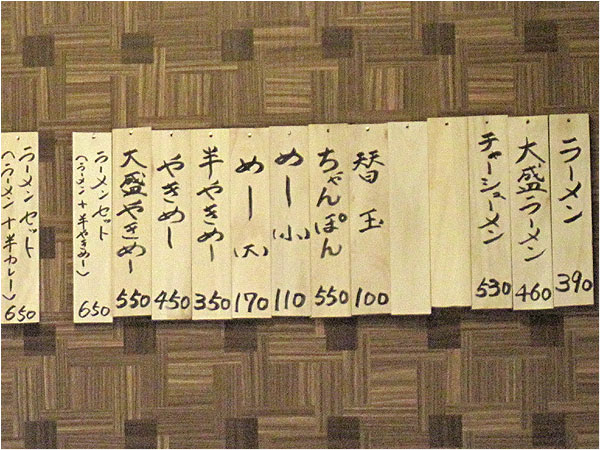 ラーメン 390
大盛ラーメン 460
チャーシューメン 530
替玉 100
ちゃんぽん 550
めし(小) 110
めし(大) 170
半やきめし 350
やきめし 450
大盛やきめし 550
ラーメンセット
(ラーメン+半やきめし) 650
ラーメンセット
(ラーメン+半カレー) 650